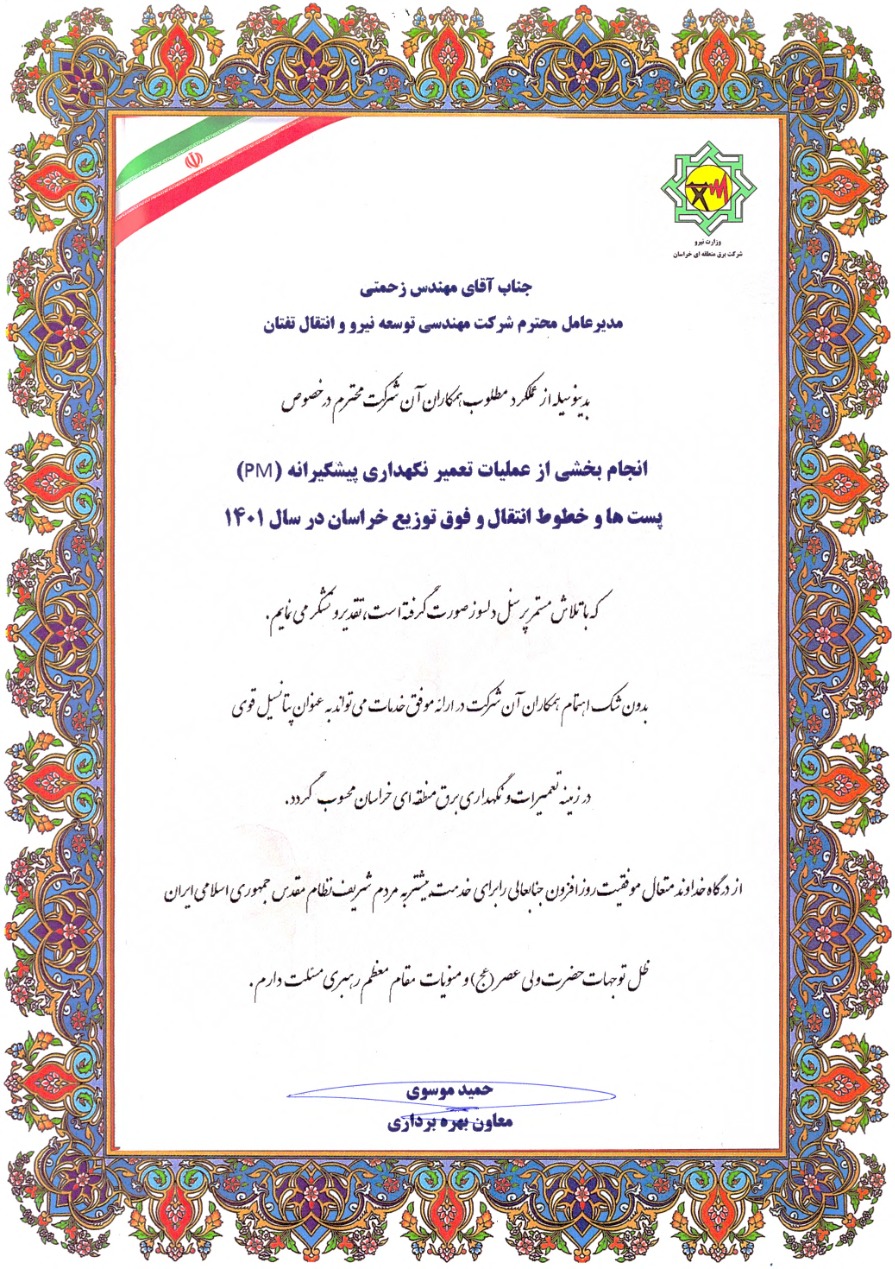 وزارت نیرو
شرکت برق منطقه ای خراسان
جناب آقای مهندس زحمتی
مدیرعامل محترم شرکت مهندسی توسعه نیرو و انتقال تفتان
بدینوسیله از عملکرد مطلوب همکاران آن شرکت محترم در خصوص
انجام بخشی از عملیات تعمیر نگهداری پیشگیرانه (PM)
پست ها و خطوط انتقال و فوق توزیع خراسان در سال ۱۴۰۱
که با تلاش مستمر پرسنل دلسوز صورت گرفته است، تقدیر و تشکر می نمایم.
بدون شک اهتمام همکاران آن شرکت در ارائه موفق خدمات می تواند به عنوان پتانسیل قوی
در زمینه تعمیرات و نگهداری برق منطقه ای خراسان محسوب گردد.
از درگاه خداوند متعال موفقیت روز افزون جنابعالی را برای خدمت بیشتر به مردم شریف نظام مقدس جمهوری اسلامی ایران
ظل توجهات حضرت ولی عصر (عج) و منویات مقام معظم رهبری مسئلت دارم.
حمید موسوی
معاون بهره برداری